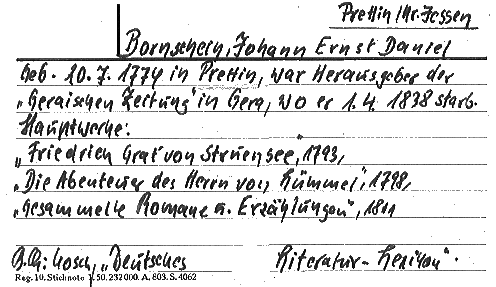 Prettin/Kr. Jessen
Bornschein, Johann Ernst Daniel
Geb. 20.7.1774 in Prettin, war Herausgeber der
„Geraischen Zeitung" in Gera, wo er 1.4.1838 starb.
Hauptwerke:
„Friedrich Graf von Struensee", 1793,
„Die Abenteuer des Herrn von Hümmel", 1798,
„Gesammelte Romane u. Erzählungen", 1811
Kosch, „Deutsches Literatur-Lexikon".
Reg. 10. Stichnote 50. 232000. A. 803. S. 4062